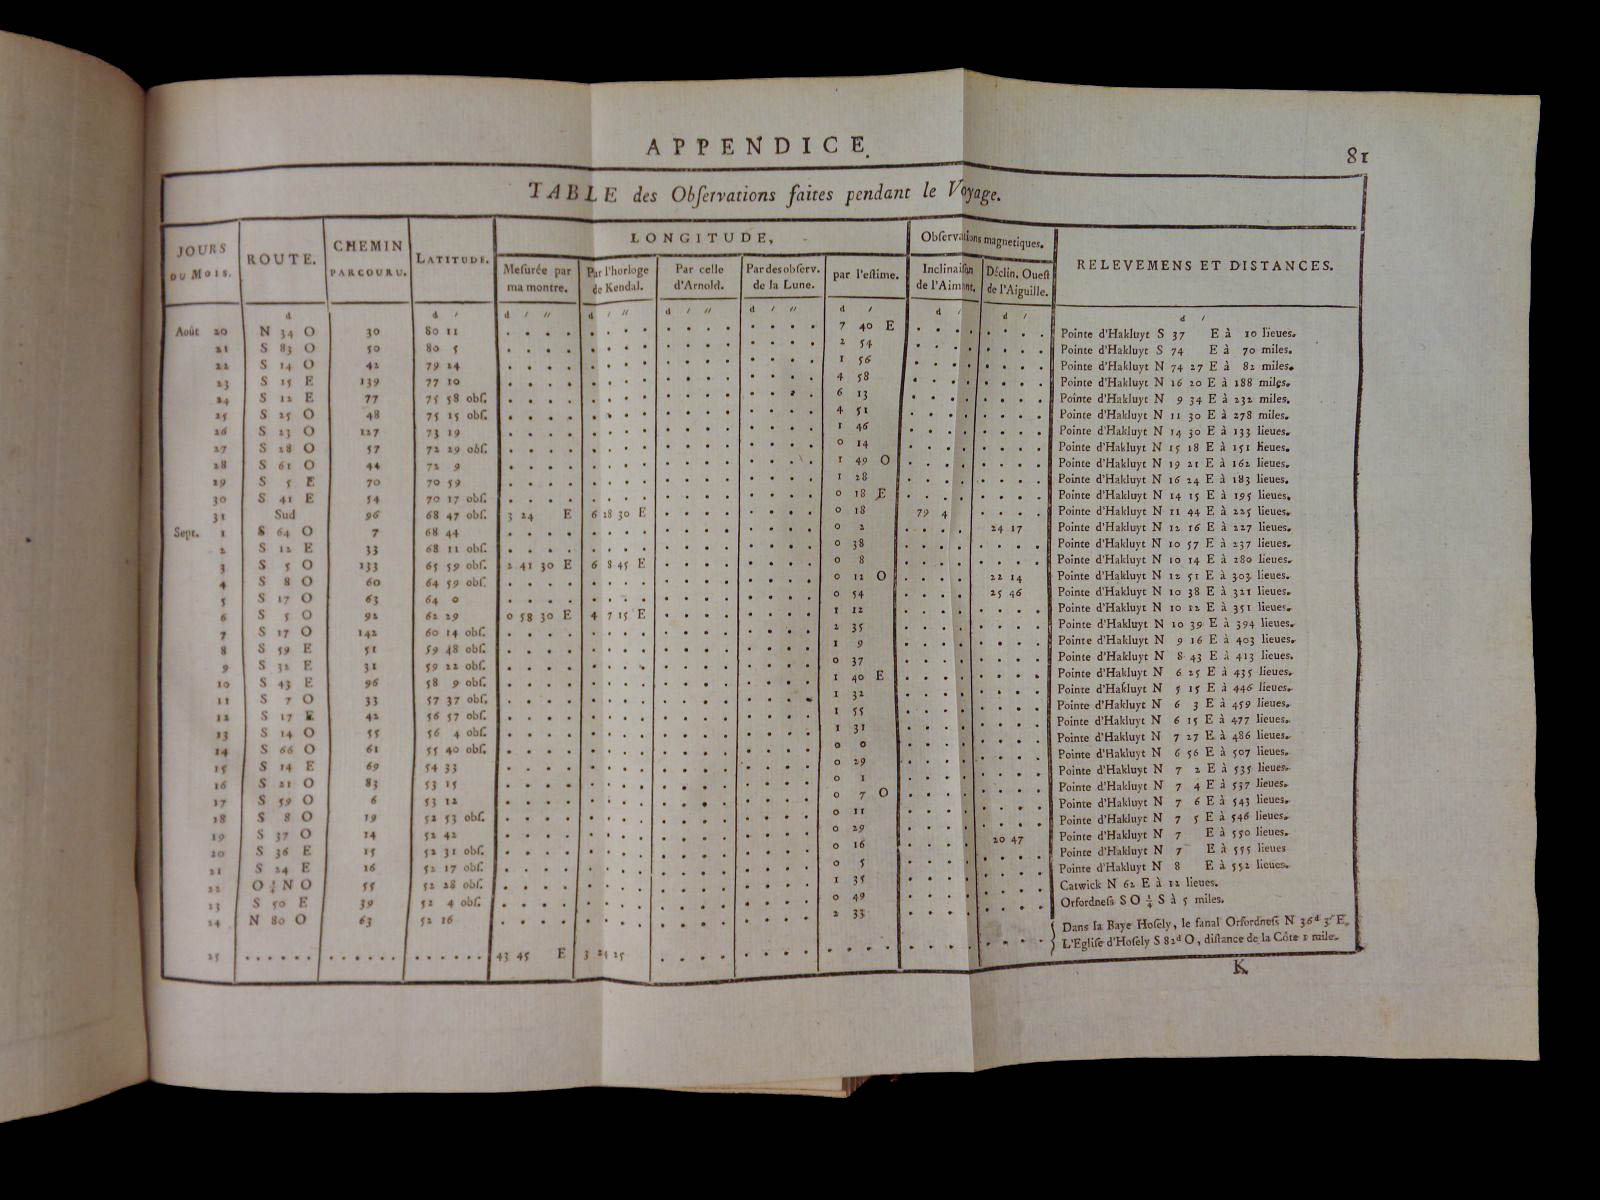 APPENDICE.
81
TABLE des Obſervations faites pendant le Voyage.
JOURS DU MOIS. ROUTE. CHEMIN PARCOURU. LATITUDE. LONGITUDE, Obſervations magnetiques. RELEVEMENS ET DISTANCES.
Meſurée par ma montre. Par l'horloge de Kendal. Par celle d'Arnold. Par des obſerv. de la Lune. par l'eſtime. Inclinaiſon de l'Aimant. Déclin. Oueſt de l'Aiguille.
d d / d / // d / // d / // d / // d / d / d / d /
Août 20 N 34 O 30 80 11 . . . . . . . . . . . . . . . . 7 40 E . . . . . . . . Pointe d'Hakluyt S 37 E à 10 lieues.
21 S 83 O 50 80 5 . . . . . . . . . . . . . . . . 2 54 . . . . . . . . Pointe d'Hakluyt S 74 E à 70 miles.
22 S 14 O 42 79 24 . . . . . . . . . . . . . . . . 1 56 . . . . . . . . Pointe d'Hakluyt N 74 27 E à 82 miles.
23 S 15 E 139 77 10 . . . . . . . . . . . . . . . . 4 58 . . . . . . . . Pointe d'Hakluyt N 16 20 E à 188 miles.
24 S 12 E 77 75 58 obſ. . . . . . . . . . . . . . . . . 6 13 . . . . . . . . Pointe d'Hakluyt N 9 34 E à 232 miles.
25 S 25 O 48 75 15 obſ. . . . . . . . . . . . . . . . . 4 51 . . . . . . . . Pointe d'Hakluyt N 11 30 E à 278 miles.
26 S 23 O 127 73 19 . . . . . . . . . . . . . . . . 1 46 . . . . . . . . Pointe d'Hakluyt N 14 30 E à 133 lieues.
27 S 28 O 57 72 29 obſ. . . . . . . . . . . . . . . . . 0 14 . . . . . . . . Pointe d'Hakluyt N 15 18 E à 151 lieues.
28 S 61 O 44 72 9 . . . . . . . . . . . . . . . . 1 49 O . . . . . . . . Pointe d'Hakluyt N 19 21 E à 162 lieues.
29 S 5 E 70 70 59 . . . . . . . . . . . . . . . . 1 28 . . . . . . . . Pointe d'Hakluyt N 16 24 E à 183 lieues.
30 S 41 E 54 70 17 obſ. . . . . . . . . . . . . . . . . 0 18 E . . . . . . . . Pointe d'Hakluyt N 14 15 E à 195 lieues.
31 Sud 96 68 47 obſ. 3 24 E 6 28 30 E . . . . . . . . 0 18 79 4 . . . . Pointe d'Hakluyt N 11 44 E à 225 lieues.
Sept. 1 S 64 O 7 68 44 . . . . . . . . . . . . . . . . 0 2 . . . . 24 17 Pointe d'Hakluyt N 12 16 E à 227 lieues.
2 S 12 E 33 68 11 obſ. . . . . . . . . . . . . . . . . 0 38 . . . . . . . . Pointe d'Hakluyt N 10 57 E à 237 lieues.
3 S 5 O 133 65 59 obſ. 2 41 30 E 6 8 45 E . . . . . . . . 0 8 . . . . . . . . Pointe d'Hakluyt N 10 14 E à 280 lieues.
4 S 8 O 60 64 59 obſ. . . . . . . . . . . . . . . . . 0 12 O . . . . 22 14 Pointe d'Hakluyt N 12 51 E à 303 lieues.
5 S 17 O 63 64 0 . . . . . . . . . . . . . . . . 0 54 . . . . 25 46 Pointe d'Hakluyt N 10 38 E à 321 lieues.
6 S 5 O 92 62 29 0 58 30 E 4 7 15 E . . . . . . . . 1 12 . . . . . . . . Pointe d'Hakluyt N 10 12 E à 351 lieues.
7 S 17 O 142 60 14 obſ. . . . . . . . . . . . . . . . . 2 35 . . . . . . . . Pointe d'Hakluyt N 10 39 E à 394 lieues.
8 S 59 E 51 59 48 obſ. . . . . . . . . . . . . . . . . 1 9 . . . . . . . . Pointe d'Hakluyt N 9 16 E à 403 lieues.
9 S 32 E 31 59 22 obſ. . . . . . . . . . . . . . . . . 0 37 . . . . . . . . Pointe d'Hakluyt N 8 43 E à 413 lieues.
10 S 43 E 96 58 9 obſ. . . . . . . . . . . . . . . . . 1 40 E . . . . . . . . Pointe d'Hakluyt N 6 25 E à 435 lieues.
11 S 7 O 33 57 37 obſ. . . . . . . . . . . . . . . . . 1 32 . . . . . . . . Pointe d'Hakluyt N 5 15 E à 446 lieues.
12 S 17 E 42 56 57 obſ. . . . . . . . . . . . . . . . . 1 55 . . . . . . . . Pointe d'Hakluyt N 6 3 E à 459 lieues.
13 S 14 O 55 56 4 obſ. . . . . . . . . . . . . . . . . 1 31 . . . . . . . . Pointe d'Hakluyt N 6 15 E à 477 lieues.
14 S 66 O 61 55 40 obſ. . . . . . . . . . . . . . . . . 0 0 . . . . . . . . Pointe d'Hakluyt N 7 27 E à 486 lieues.
15 S 14 E 69 54 33 . . . . . . . . . . . . . . . . 0 29 . . . . . . . . Pointe d'Hakluyt N 6 56 E à 507 lieues.
16 S 21 O 83 53 15 . . . . . . . . . . . . . . . . 0 1 . . . . . . . . Pointe d'Hakluyt N 7 2 E à 535 lieues.
17 S 59 O 6 53 12 . . . . . . . . . . . . . . . . 0 7 O . . . . . . . . Pointe d'Hakluyt N 7 4 E à 537 lieues.
18 S 8 O 19 52 53 obſ. . . . . . . . . . . . . . . . . 0 11 . . . . . . . . Pointe d'Hakluyt N 7 6 E à 543 lieues.
19 S 37 O 14 52 42 . . . . . . . . . . . . . . . . 0 29 . . . . . . . . Pointe d'Hakluyt N 7 5 E à 546 lieues.
20 S 36 E 15 52 31 obſ. . . . . . . . . . . . . . . . . 0 16 . . . . 20 47 Pointe d'Hakluyt N 7 E à 550 lieues.
21 S 24 E 16 52 17 obſ. . . . . . . . . . . . . . . . . 0 5 . . . . . . . . Pointe d'Hakluyt N 7 E à 555 lieues
22 O ¼ N O 55 52 28 obſ. . . . . . . . . . . . . . . . . 1 35 . . . . . . . . Pointe d'Hakluyt N 8 E à 552 lieues.
23 S 50 E 39 52 4 obſ. . . . . . . . . . . . . . . . . 0 49 . . . . . . . . Catwick N 62 E à 12 lieues.
24 N 80 O 63 52 16 . . . . . . . . . . . . . . . . 2 33 . . . . . . . . Orfordneſs S O ¼ S à 5 miles.
25 . . . . . . . . . . . . . . . . . . 43 45 E 3 24 25 . . . . . . . . . . . . . . . . . . . . Dans la Baye Hoſely, le fanal Orfordneſs N 36d 3′ E.
L'Egliſe d'Hoſely S 82d O, diſtance de la Côte 1 mile.
K